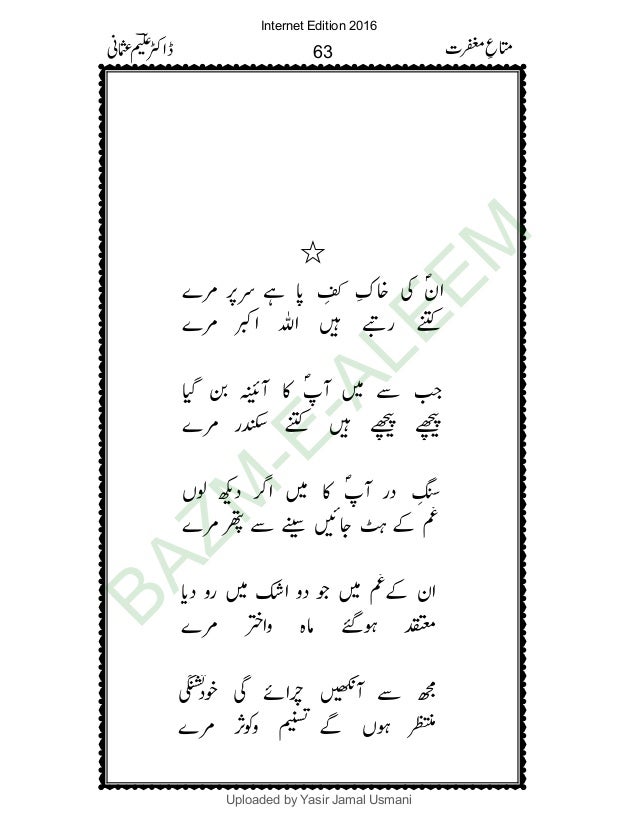 Internet Edition 2016
متاعِ مغفرت
63
ڈاکٹر علیمؔ عثمانی
☆
انؐ کی خاکِ کفِ پا ہے سر پر مرے
کتنے رتبے ہیں اللہ اکبر مرے
جب سے میں آپؐ کا آئینہ بن گیا
پیچھے پیچھے ہیں کتنے سکندر مرے
سنگِ در آپؐ کا میں اگر دیکھ لوں
غم کے ہٹ جائیں سینے سے پتھر مرے
ان کے غم میں جو دو اشک میں رو دیا
معتقد ہوگئے ماہ واختر مرے
مجھ سے آنکھیں چرائے گی خود تشنگی
منتظر ہوں گے تسنیم وکوثر مرے
BAZM-E-ALEEM
Uploaded by Yasir Jamal Usmani